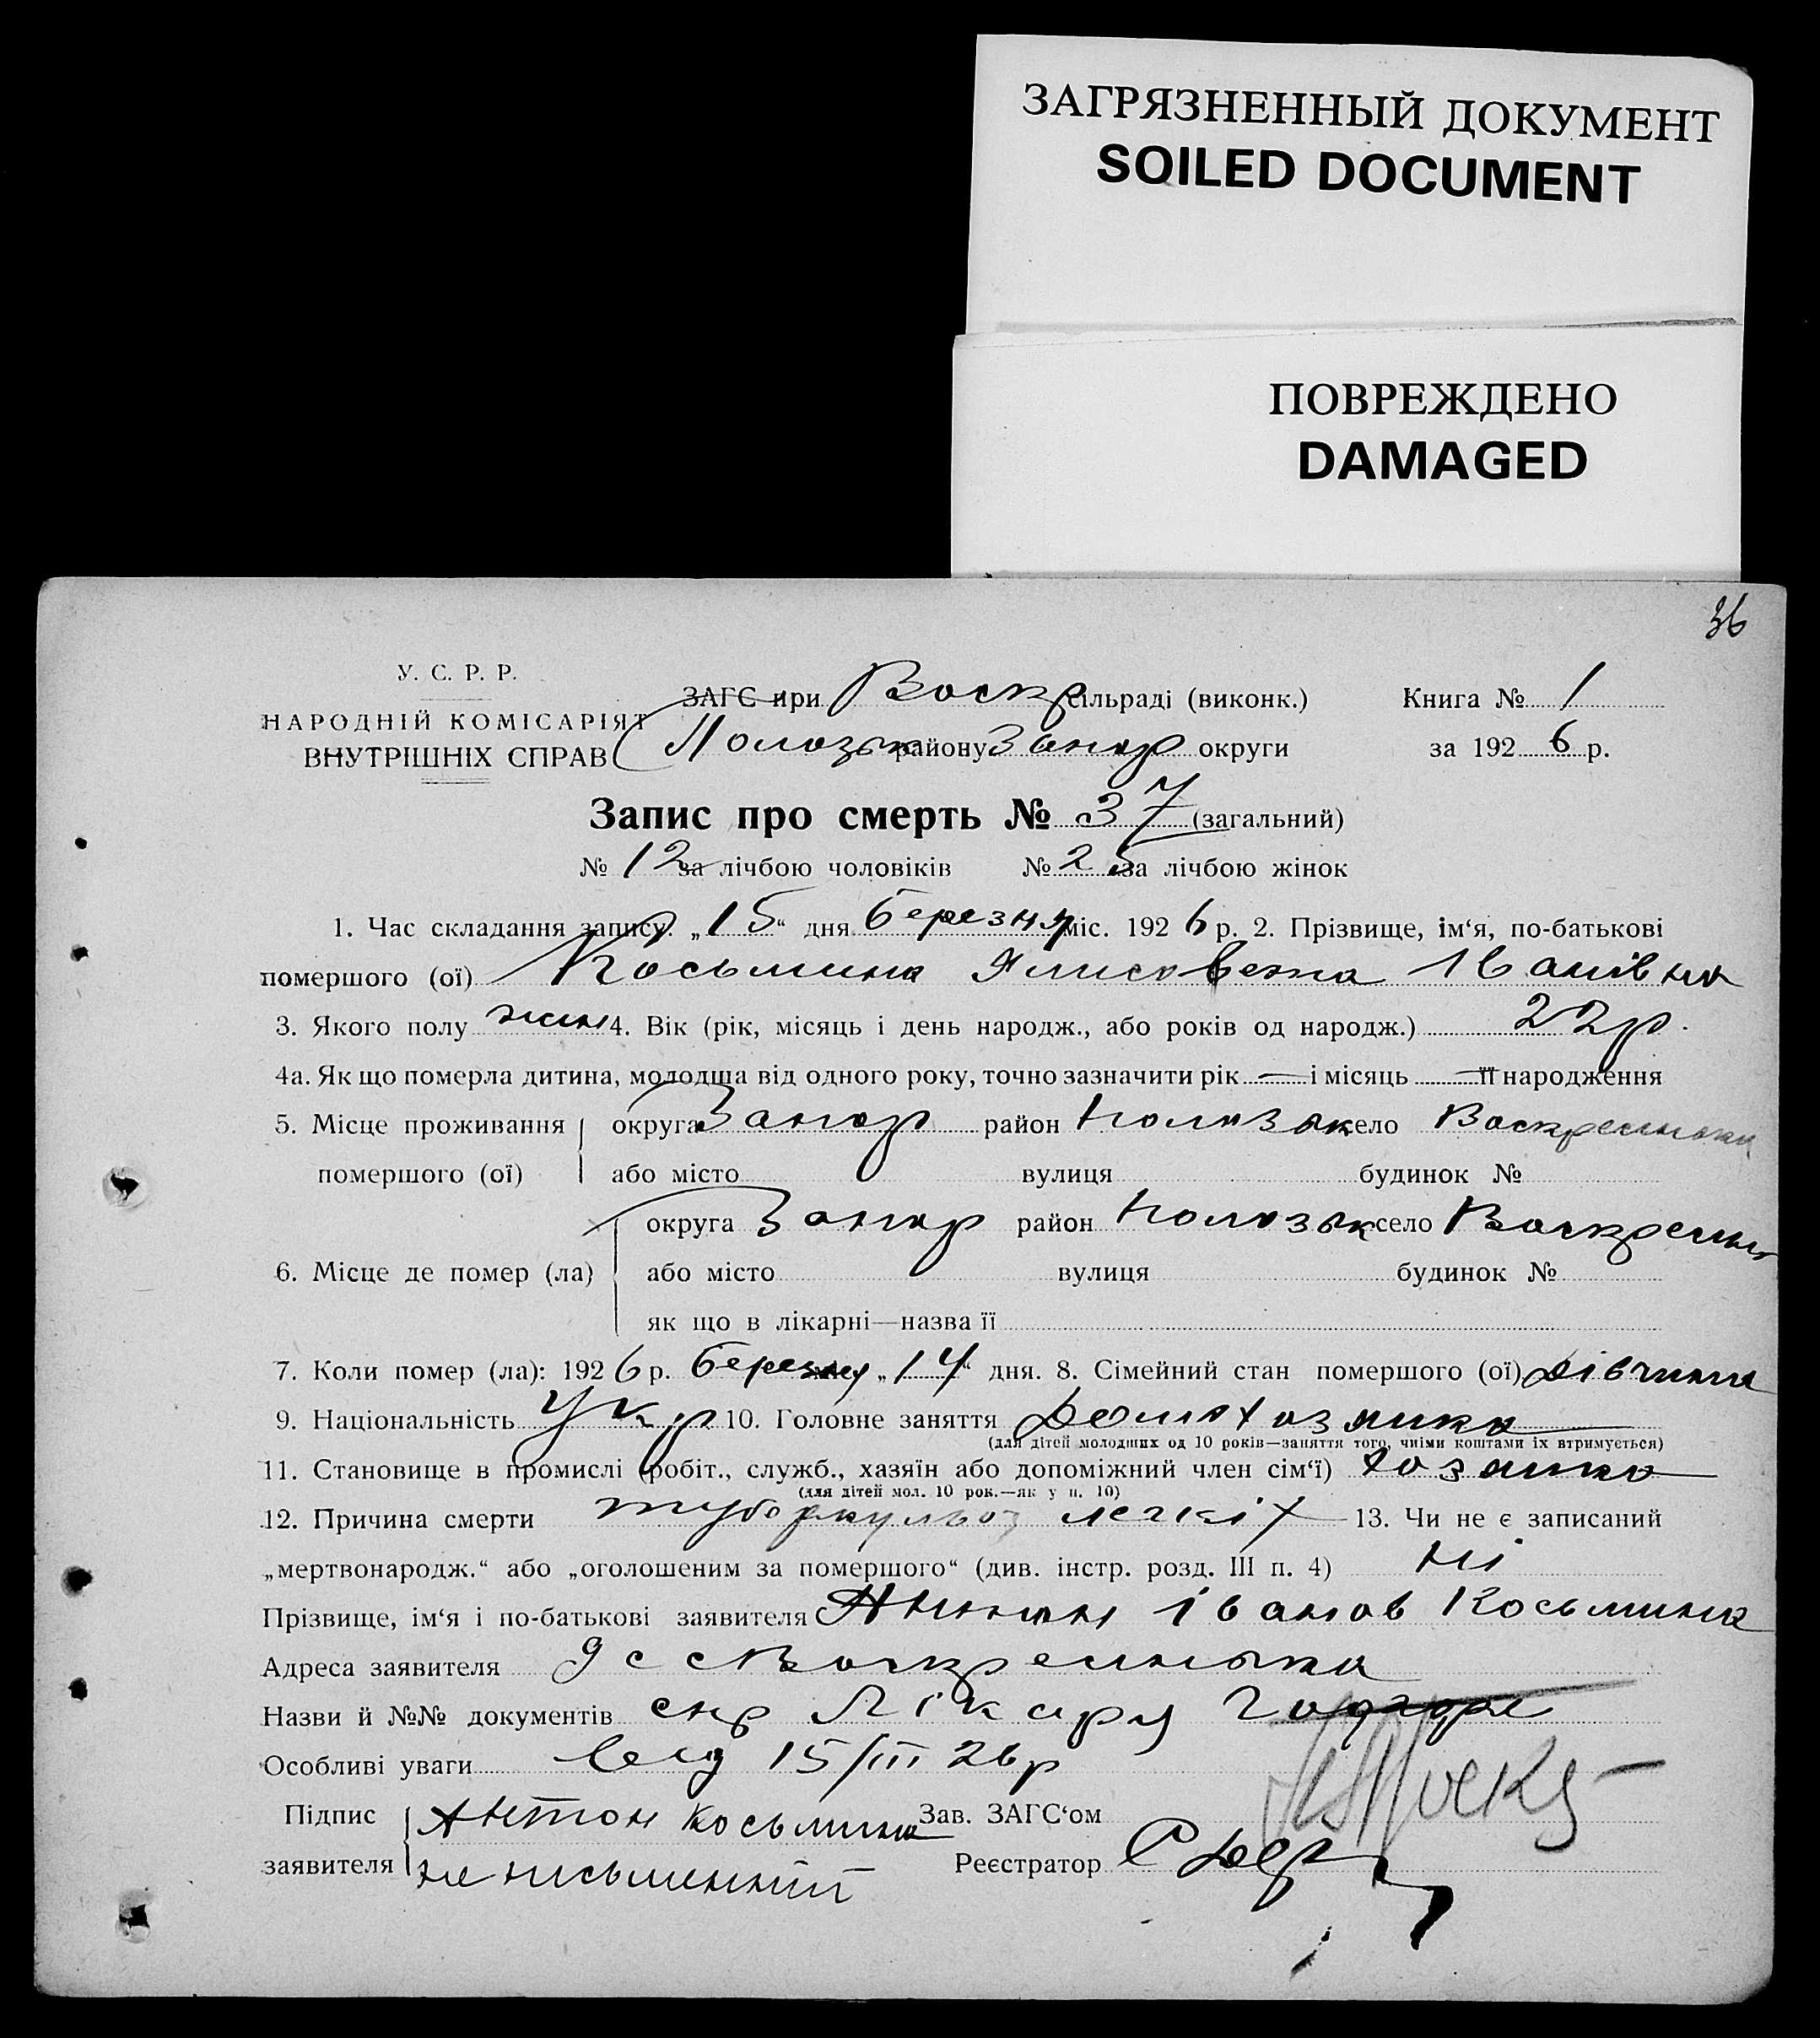 ЗАГРЯЗНЕННЫЙ ДОКУМЕНТ
SOILED DOCUMENT
ПОВРЕЖДЕНО
DAMAGED
36
У. С. Р. Р.
НАРОДНІЙ КОМІСАРІЯТ
ВНУТРІШНІХ СПРАВ
ЗАГС при Воскр сільраді (виконк.) Книга № 1
Пологзьк району Запор округи за 1926 р.
Запис про смерть № 37 (загальний)
№ 12 за лічбою чоловіків № 25 за лічбою жінок
1. Час складання запису. „15“ дня березня міс. 1926 р. 2. Прізвище, ім‘я, по-батькові
помершого (ої) Косьмина Єлисовета Іванівна
3. Якого полу жін 4. Вік (рік, місяць і день народж., або років од народж.) 22 р.
4а. Як що померла дитина, молодша від одного року, точно зазначити рік — і місяць — її народження
5. Місце проживання округа Запор район село Воскресенька
помершого (ої) або місто вулиця будинок №
округа Запор район село
6. Місце де помер (ла) або місто вулиця будинок №
як що в лікарні—назва її
7. Коли помер (ла): 1926 р. березня „14“ дня. 8. Сімейний стан помершого (ої) дівчина
9. Національність Укр 10. Головне заняття домохозяйка
(для дітей молодших од 10 років—заняття того, чиїми коштами їх втримується)
11. Становище в промислі (робіт., служб., хазяїн або допоміжний член сім‘ї) хозяйка
(для дітей мол. 10 рок.—як у п. 10)
12. Причина смерти туберкульоз легкіх 13. Чи не є записаний
„мертвонародж.“ або „оголошеним за помершого“ (див. інстр. розд. III п. 4) ні
Прізвище, ім‘я і по-батькові заявителя Антон Іванов Косьмина
Адреса заявителя с Воскресенька
Назви й №№ документів спр Лікару
Особливі уваги 15/III 26 р
Підпис Антон Косьмина Зав. ЗАГС‘ом
заявителя не письменний Реєстратор